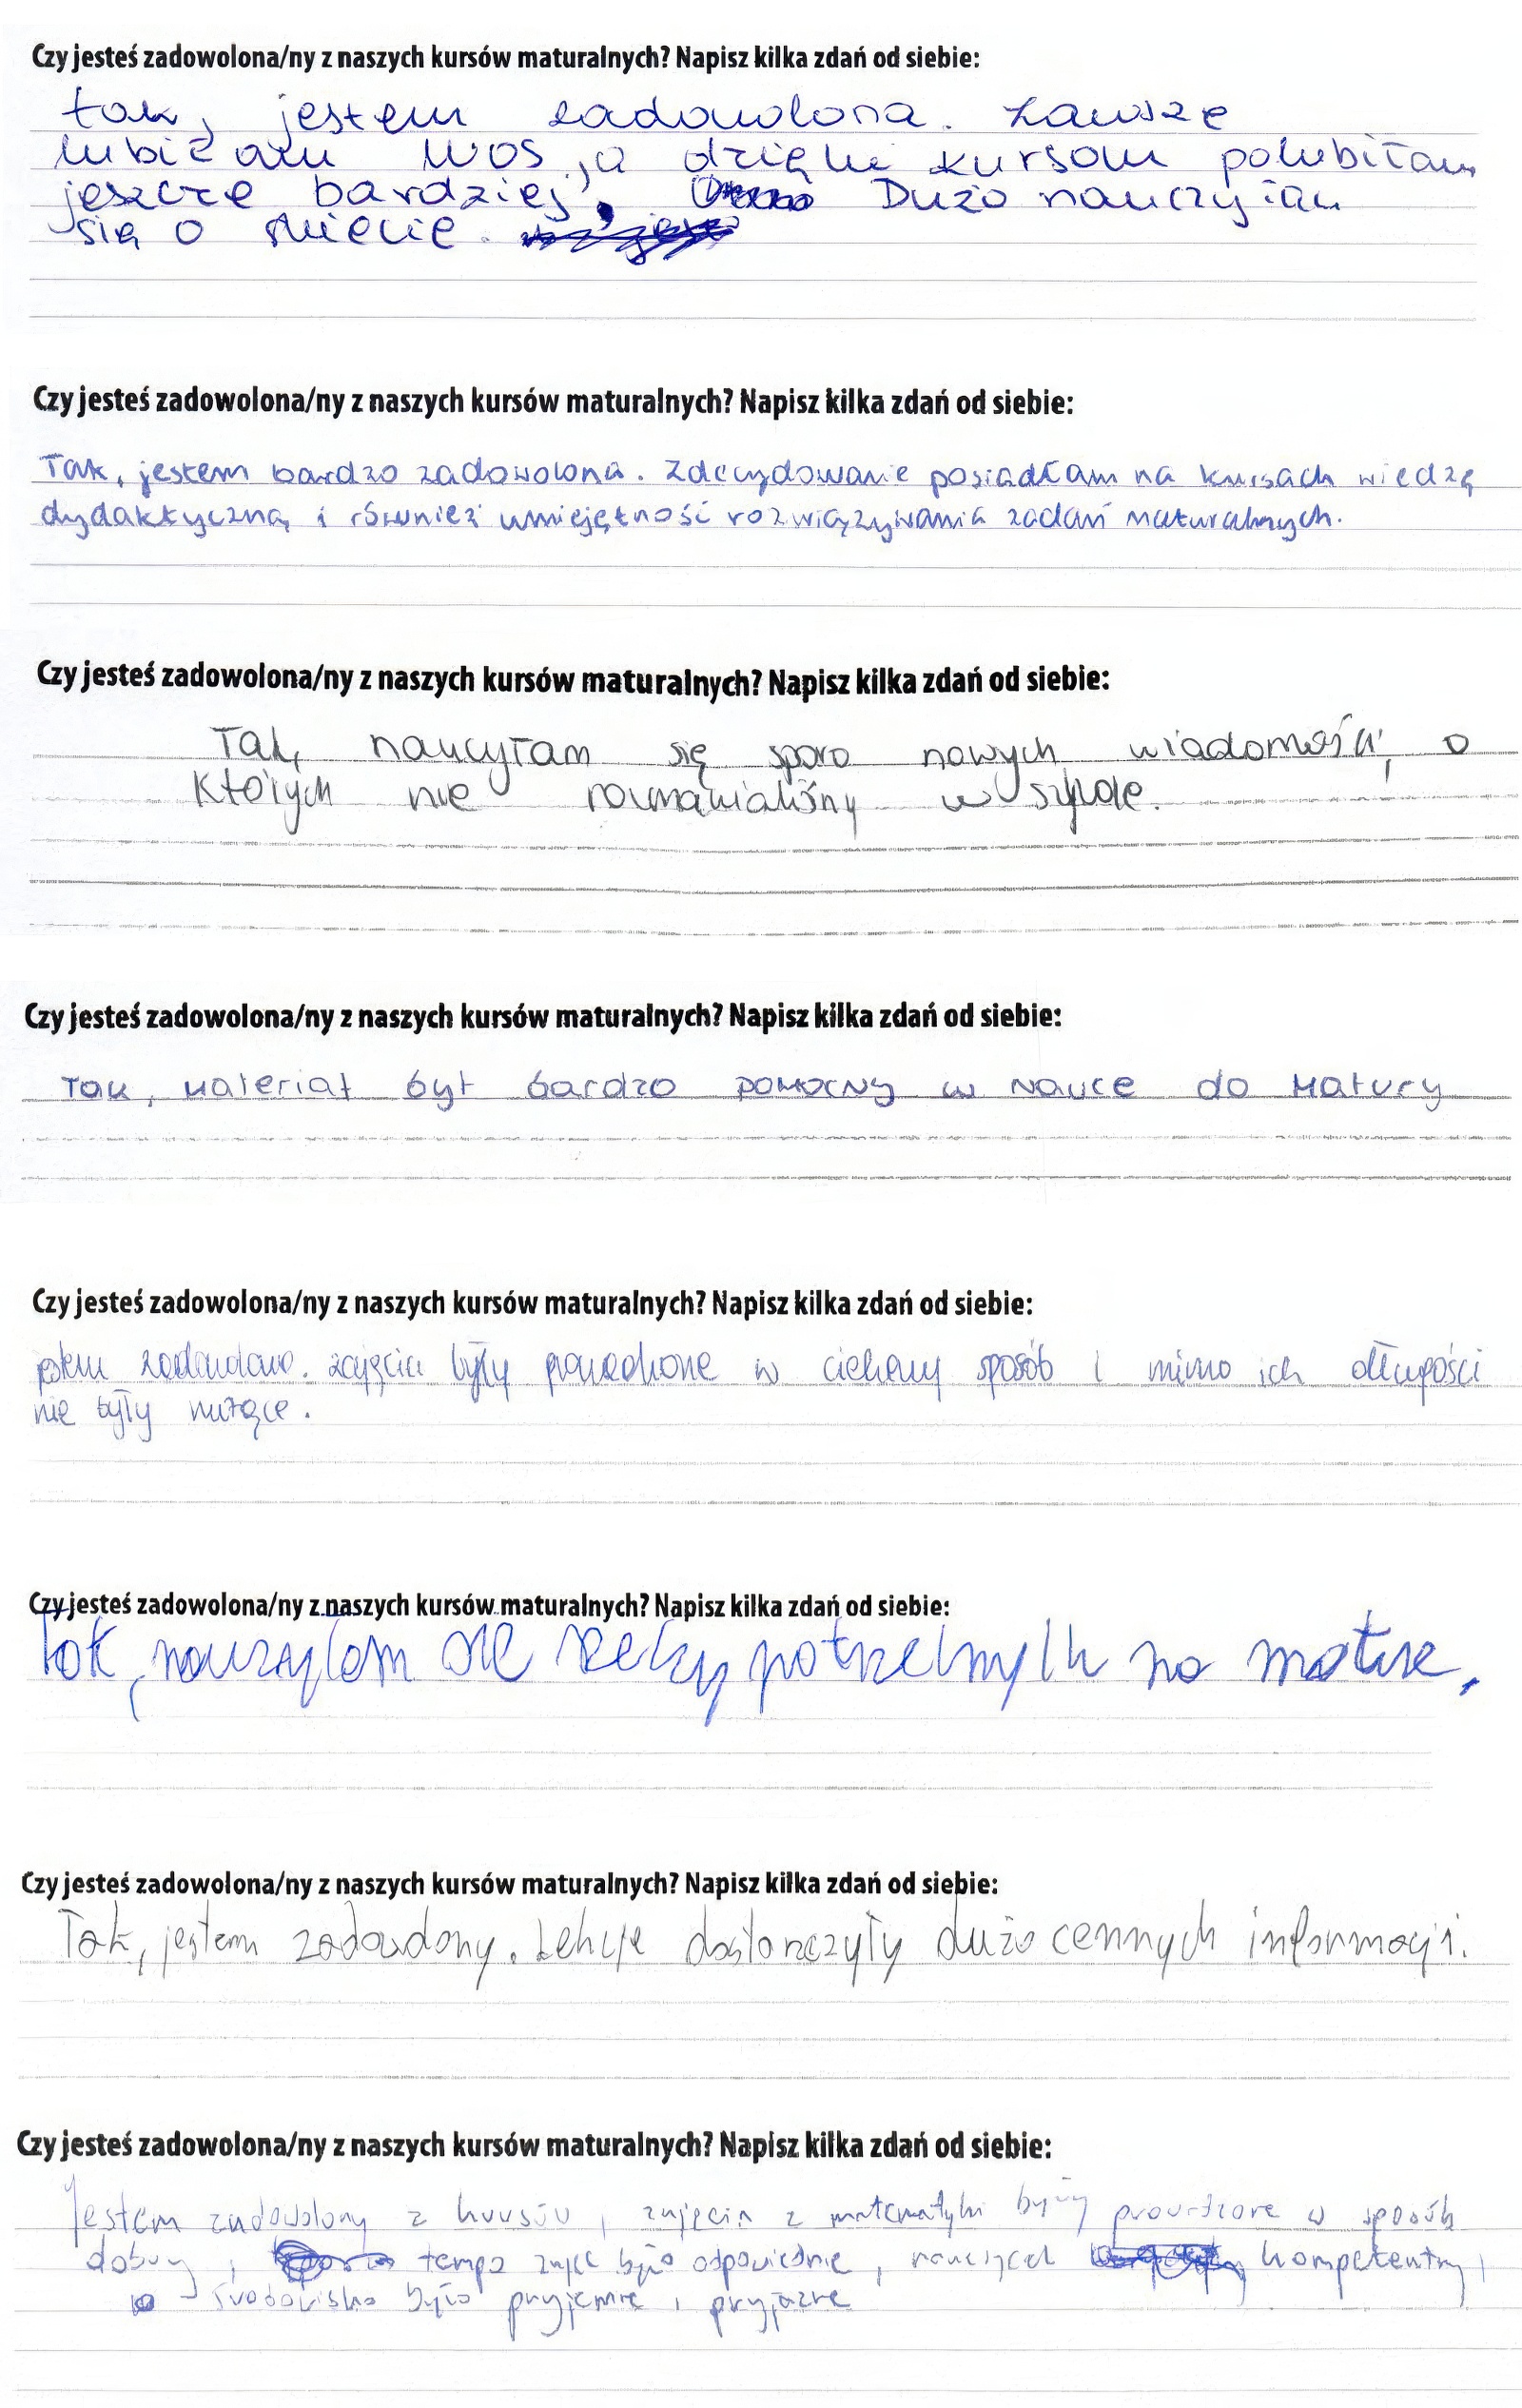 Czy jesteś zadowolona/ny z naszych kursów maturalnych? Napisz kilka zdań od siebie:
tak, jestem zadowolona. Zawsze
lubiłam WOS, a dzięki kursom polubiłam
jeszcze bardziej. Dużo nauczyłam
się o świecie.
Czy jesteś zadowolona/ny z naszych kursów maturalnych? Napisz kilka zdań od siebie:
Tak, jestem bardzo zadowolona. Zdecydowanie posiadłam na kursach wiedzę
dydaktyczną i również umiejętność rozwiązywania zadań maturalnych.
Czy jesteś zadowolona/ny z naszych kursów maturalnych? Napisz kilka zdań od siebie:
Tak, naucyłam się sporo nowych wiadomości, o
których nie rozmawialiśmy w szkole.
Czy jesteś zadowolona/ny z naszych kursów maturalnych? Napisz kilka zdań od siebie:
Tak, materiał był bardzo pomocny w nauce do matury
Czy jesteś zadowolona/ny z naszych kursów maturalnych? Napisz kilka zdań od siebie:
jestem zadowolona. zajęcia były prowadzone w ciekawy sposób i mimo ich długości
nie były nużące.
Czy jesteś zadowolona/ny z naszych kursów maturalnych? Napisz kilka zdań od siebie:
Tak, nauczyłam się rzeczy potrzebnych na maturze.
Czy jesteś zadowolona/ny z naszych kursów maturalnych? Napisz kilka zdań od siebie:
Tak, jestem zadowolony. Lekcje dostarczyły dużo cennych informacji.
Czy jesteś zadowolona/ny z naszych kursów maturalnych? Napisz kilka zdań od siebie:
Jestem zadowolony z kursów, zajęcia z matematyki były prowadzone w sposób
dobry, tempo zajęć było odpowiednie, nauczyciel kompetentny,
środowisko było przyjemne i przyjazne